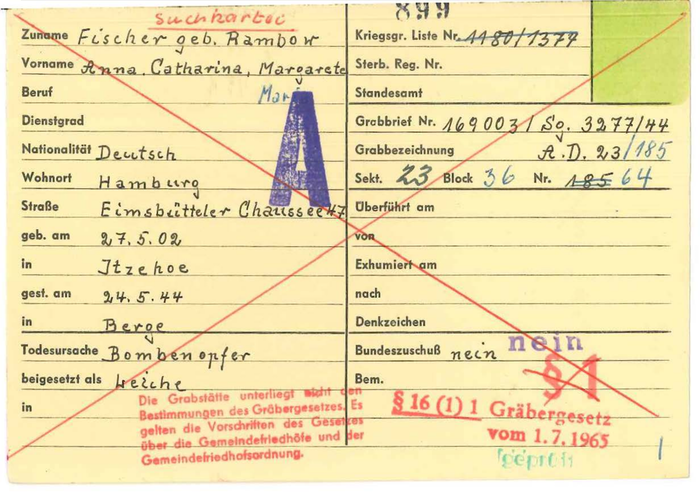 Suchkartei
899
Zuname Fischer geb. Rambow
Vorname Anna, Catharina, Margarete
Beruf
Dienstgrad
Nationalität Deutsch
Wohnort Hamburg
Straße Eimsbütteler Chaussee 47
geb. am 27.5.02
in Itzehoe
gest. am 24.5.44
in Berge
Todesursache Bombenopfer
beigesetzt als Leiche
in
A
Die Grabstätte unterliegt nicht den
Bestimmungen des Gräbergesetzes. Es
gelten die Vorschriften des Gesetzes
über die Gemeindefriedhöfe und der
Gemeindefriedhofsordnung.
Kriegsgr. Liste Nr. 1180/1377
Sterb. Reg. Nr.
Standesamt
Grabbrief Nr. 169003/ Sg. 3277/44
Grabbezeichnung A.D. 23/185
Sekt. 23 Block 36 Nr. 185 64
Überführt am
von
Exhumiert am
nach
Denkzeichen
Bundeszuschuß nein nein
Bem. § 1
§ 16 (1) 1 Gräbergesetz
vom 1.7.1965
geprüft